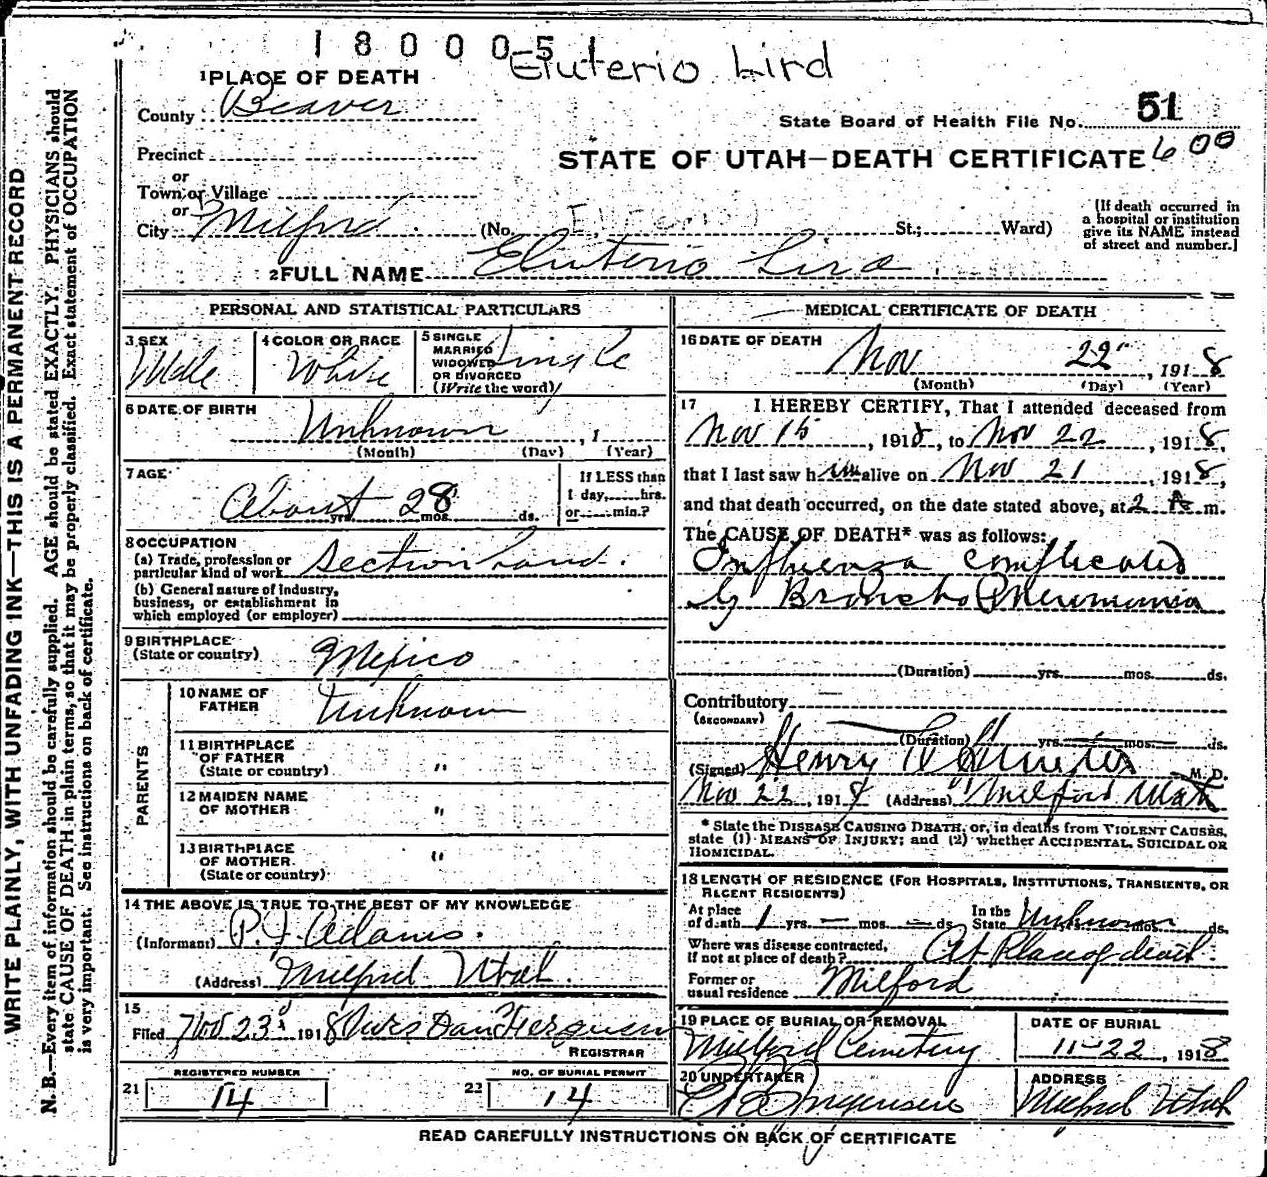 1800051 Eluterio Lird
1 PLACE OF DEATH
County: Beaver
State Board of Health File No. 51
Precinct
STATE OF UTAH—DEATH CERTIFICATE 600
or
Town or Village
or
City Milford (No. St.; Ward)
[If death occurred in
a hospital or institution
give its NAME instead
of street and number.]
2 FULL NAME Eluterio Lira
PERSONAL AND STATISTICAL PARTICULARS
3 SEX Male
4 COLOR OR RACE White
5 SINGLE
MARRIED
WIDOWED
OR DIVORCED
(Write the word) Single
6 DATE OF BIRTH Unknown, 1
(Month) (Day) (Year)
7 AGE About 28
yrs. mos. ds.
If LESS than
1 day, hrs.
or min.?
8 OCCUPATION
(a) Trade, profession or
particular kind of work Section hand.
(b) General nature of Industry,
business, or establishment in
which employed (or employer)
9 BIRTHPLACE
(State or country) Mexico
PARENTS
10 NAME OF
FATHER Unknown
11 BIRTHPLACE
OF FATHER
(State or country) "
12 MAIDEN NAME
OF MOTHER "
13 BIRTHPLACE
OF MOTHER
(State or country) "
14 THE ABOVE IS TRUE TO THE BEST OF MY KNOWLEDGE
(Informant) P. J. Adams.
(Address) Milford Utah.
15
Filed Nov 23, 1918 Mrs Dan Ferguson
REGISTRAR
21 REGISTERED NUMBER 14
22 NO. OF BURIAL PERMIT 14
MEDICAL CERTIFICATE OF DEATH
16 DATE OF DEATH
Nov 22, 1918
(Month) (Day) (Year)
17 I HEREBY CERTIFY, That I attended deceased from
Nov 15, 1918, to Nov 22, 1918,
that I last saw him alive on Nov 21, 1918,
and that death occurred, on the date stated above, at 2 A. m.
The CAUSE OF DEATH* was as follows:
Influenza complicated
by Broncho Pneumonia
(Duration) yrs. mos. ds.
Contributory
(SECONDARY)
(Duration) yrs. mos. ds.
(Signed) Henry M. D.
Nov 22, 1918 (Address) Milford Utah
* State the DISEASE CAUSING DEATH, or, in deaths from VIOLENT CAUSES,
state (1) MEANS OF INJURY; and (2) whether ACCIDENTAL, SUICIDAL OR
HOMICIDAL.
18 LENGTH OF RESIDENCE (FOR HOSPITALS, INSTITUTIONS, TRANSIENTS, OR
RECENT RESIDENTS)
At place
of death 1 yrs. — mos. — ds. In the
State Unknown mos. ds.
Where was disease contracted,
if not at place of death? At Place of death.
Former or
usual residence Milford
19 PLACE OF BURIAL OR REMOVAL
Milford Cemetery
DATE OF BURIAL
11-22, 1918
20 UNDERTAKER
ADDRESS
Milford Utah
READ CAREFULLY INSTRUCTIONS ON BACK OF CERTIFICATE
WRITE PLAINLY, WITH UNFADING INK—THIS IS A PERMANENT RECORD
N. B.—Every item of information should be carefully supplied. AGE should be stated EXACTLY. PHYSICIANS should
state CAUSE OF DEATH in plain terms, so that it may be properly classified. Exact statement of OCCUPATION
is very important. See instructions on back of certificate.